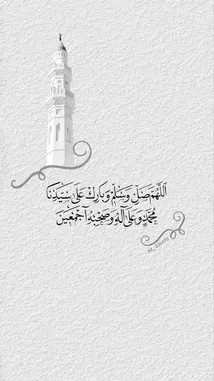 اللَّهُمَّ صَلِّ وَسَلِّمْ وَبَارِكْ عَلَىٰ سَيِّدِنَا
مُحَمَّدٍ وَعَلَىٰ آلِهِ وَصَحْبِهِ أَجْمَعِينَ